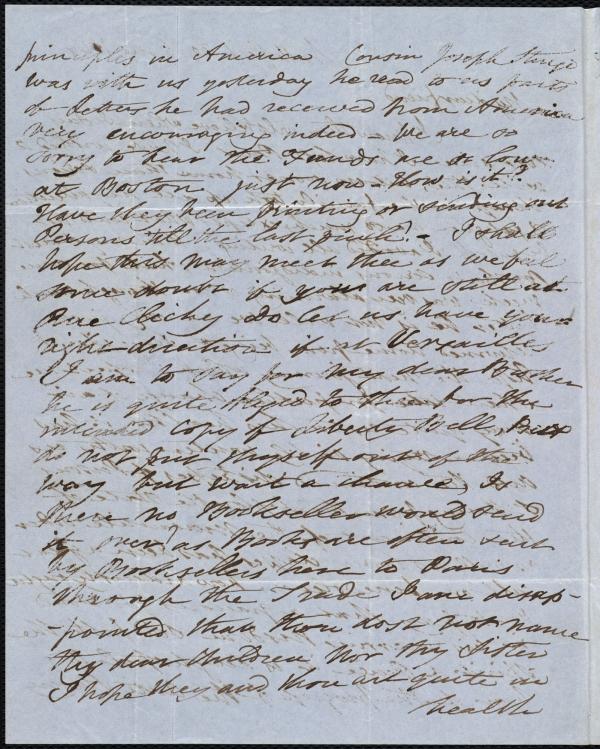 principles in America Cousin Joseph Sturge
was with us yesterday he read to us parts
of letters he had received from America
very encouraging indeed - we are so
sorry to hear the Funds are so low
at Boston just now - How is it?
Have they been printing or sending out
Persons till the last pinch? - I shall
hope this may meet thee as we feel
some doubt if your are still at
Rue Clichy do let us have your
right direction if at Versailles
I am to say for my dear
he is quite obliged to thee for the
intended copy of Liberty Bell, But
do not put thyself out of the
way but wait a chance, Is
there no Bookseller would send
it over? as Books are often sent
by Booksellers here to Paris
through the Trade I am disap-
-pointed that thou dost not name
thy dear children nor thy Sister
I hope they and thou art quite in
health